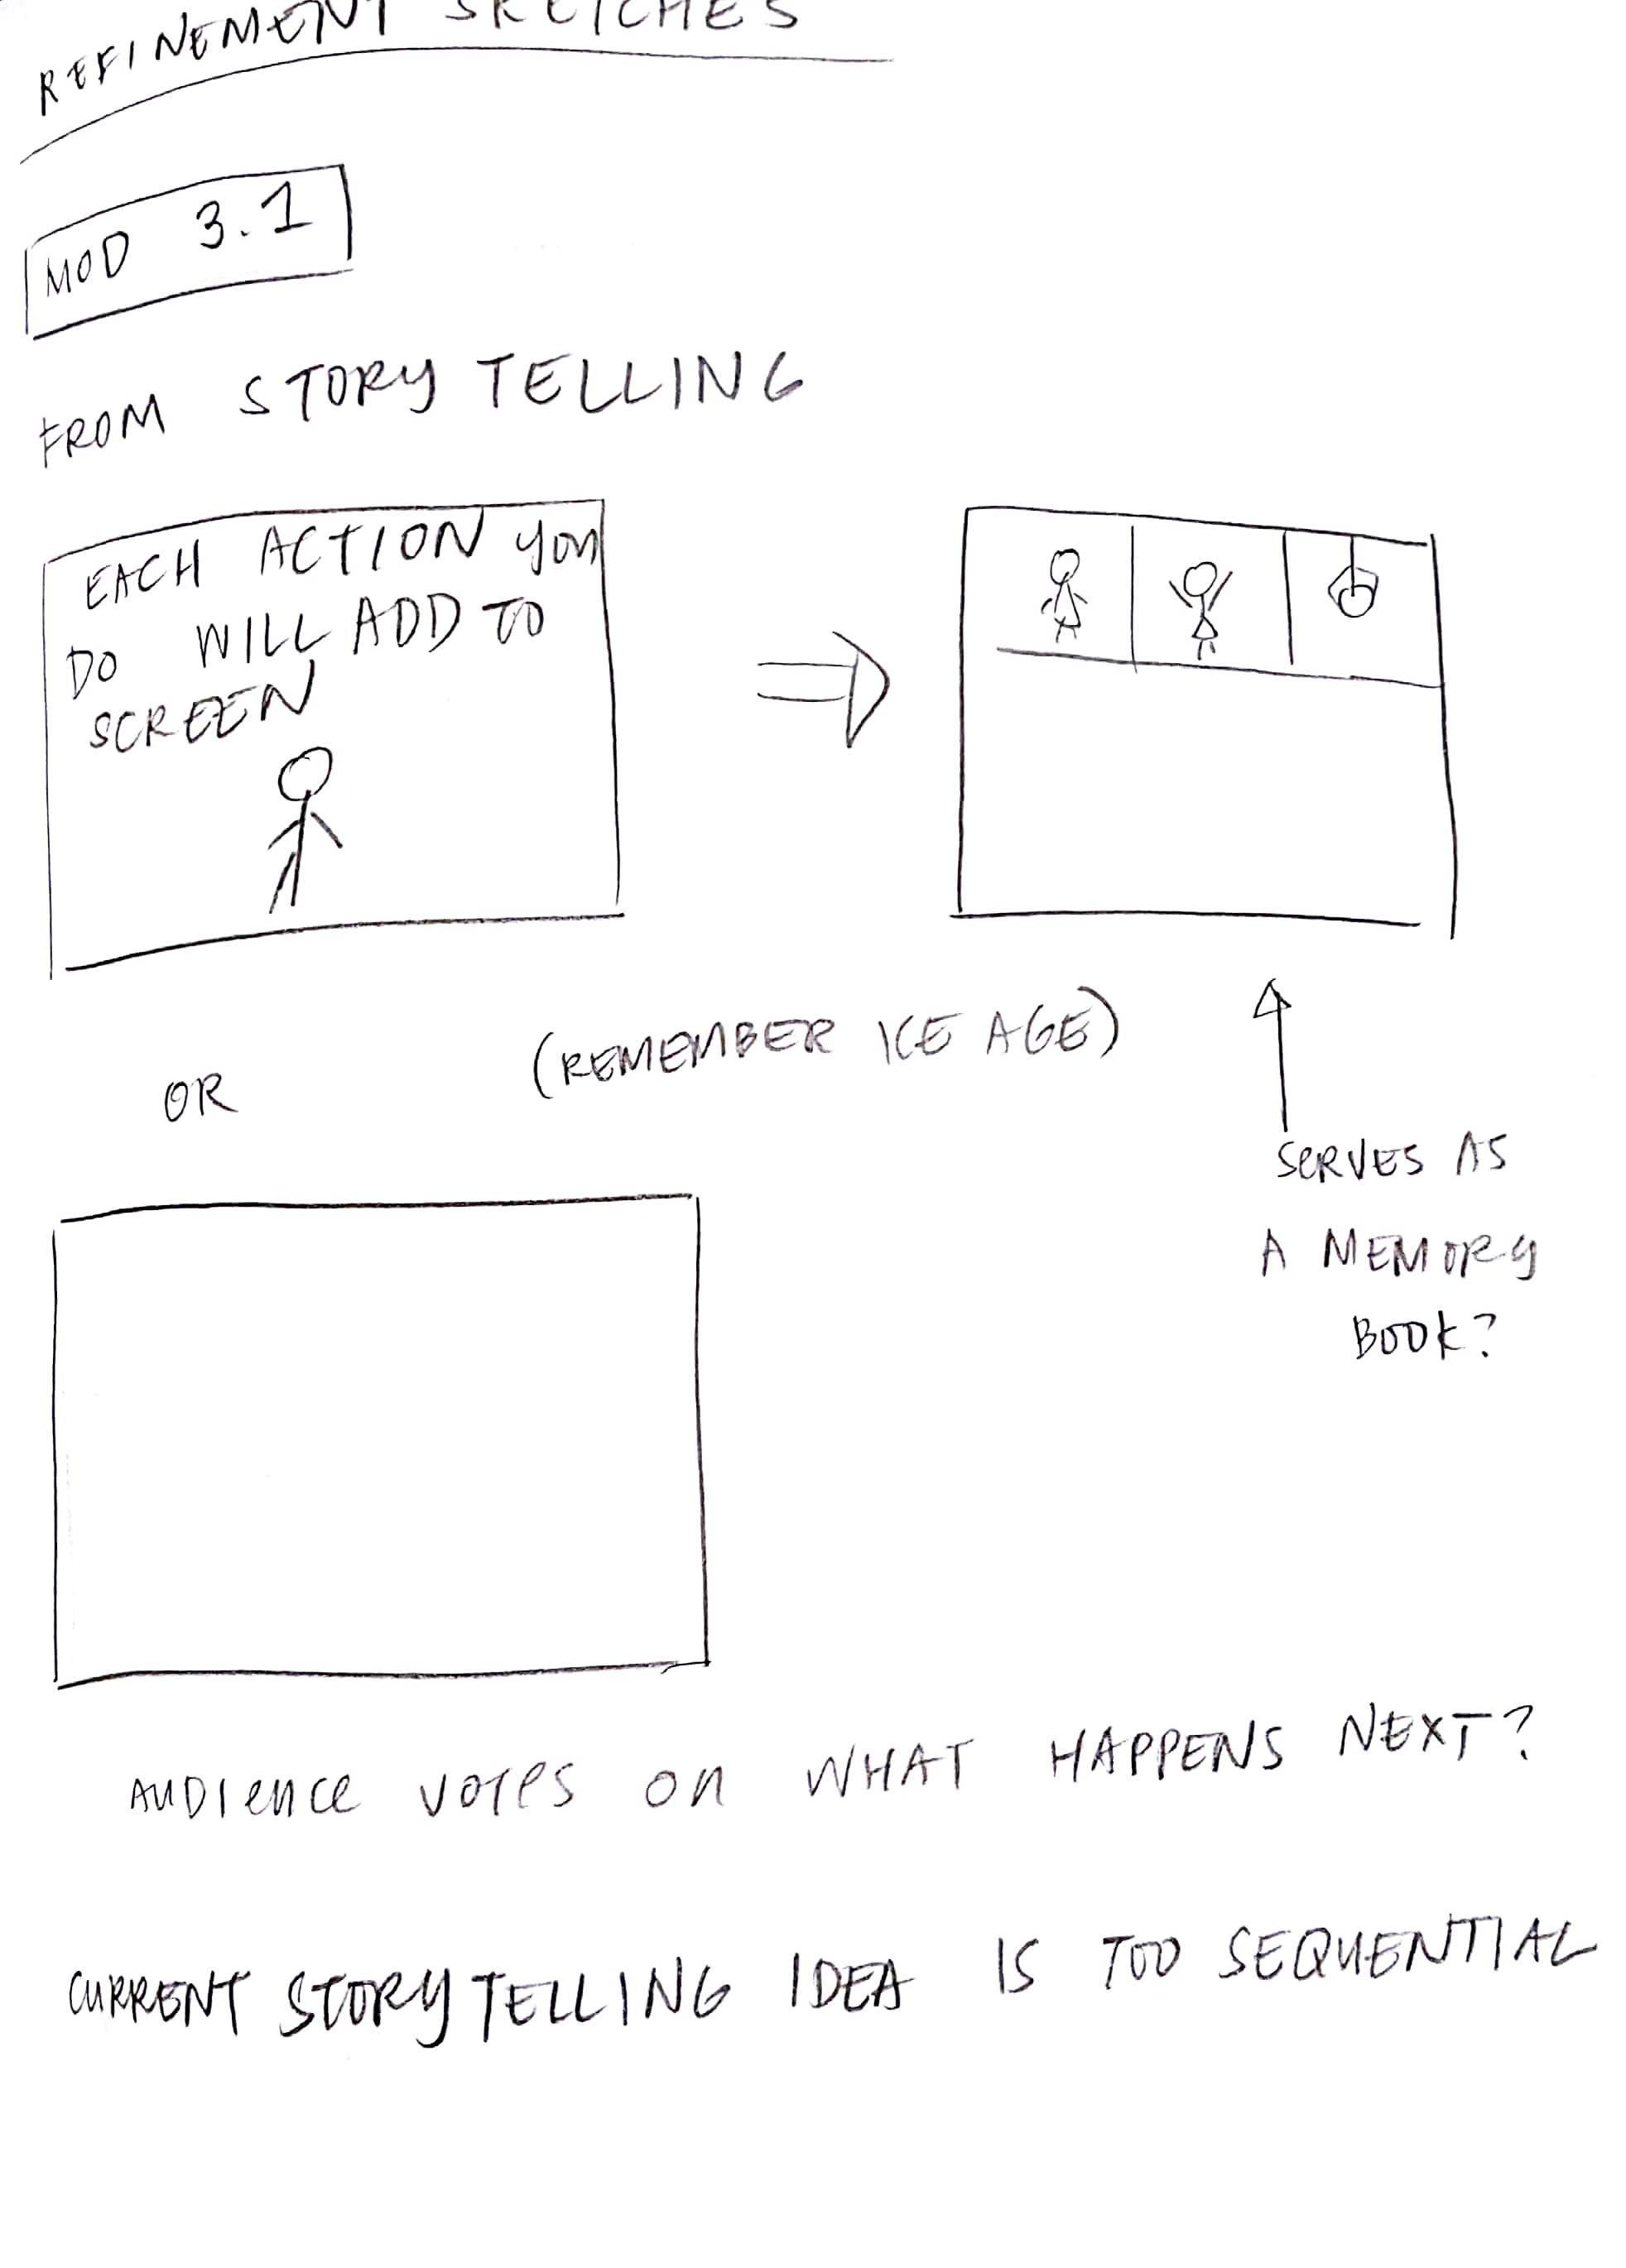 REFINEMENT SKETCHES
MOD 3.1
FROM STORY TELLING
EACH ACTION YOU
DO WILL ADD TO
SCREEN
(REMEMBER ICE AGE)
OR
SERVES AS
A MEMORY
BOOK?
AUDIENCE VOTES ON WHAT HAPPENS NEXT?
CURRENT STORYTELLING IDEA IS TOO SEQUENTIAL